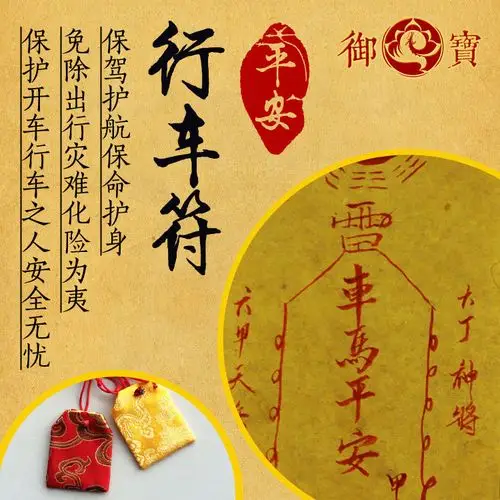 御寶
平安
行车符
保驾护航保命护身
免除出行灾难化险为夷
保护开车行车之人安全无忧
雷
車馬平安
六丁神將
六甲天
甲